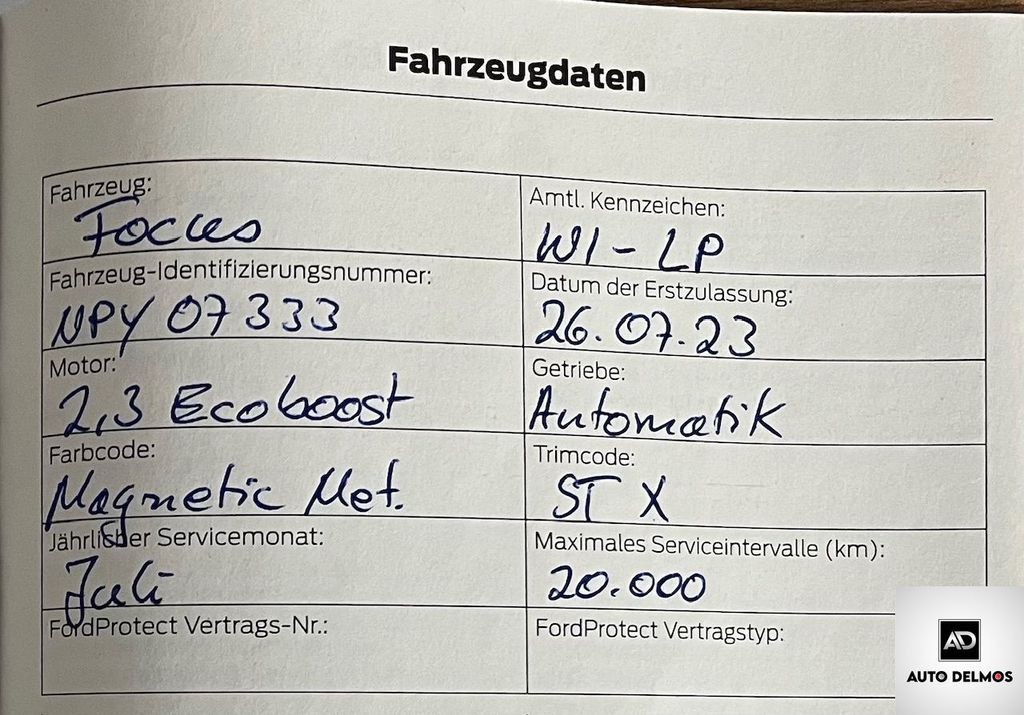 Fahrzeugdaten
Fahrzeug:
Focus
Amtl. Kennzeichen:
WI - LP
Fahrzeug-Identifizierungsnummer:
NPY 07333
Datum der Erstzulassung:
26.07.23
Motor:
2,3 Ecoboost
Getriebe:
Automatik
Farbcode:
Magnetic Met.
Trimcode:
ST X
Jährlicher Servicemonat:
Juli
Maximales Serviceintervalle (km):
20.000
FordProtect Vertrags-Nr.:
FordProtect Vertragstyp:
AD
AUTO DELMOS